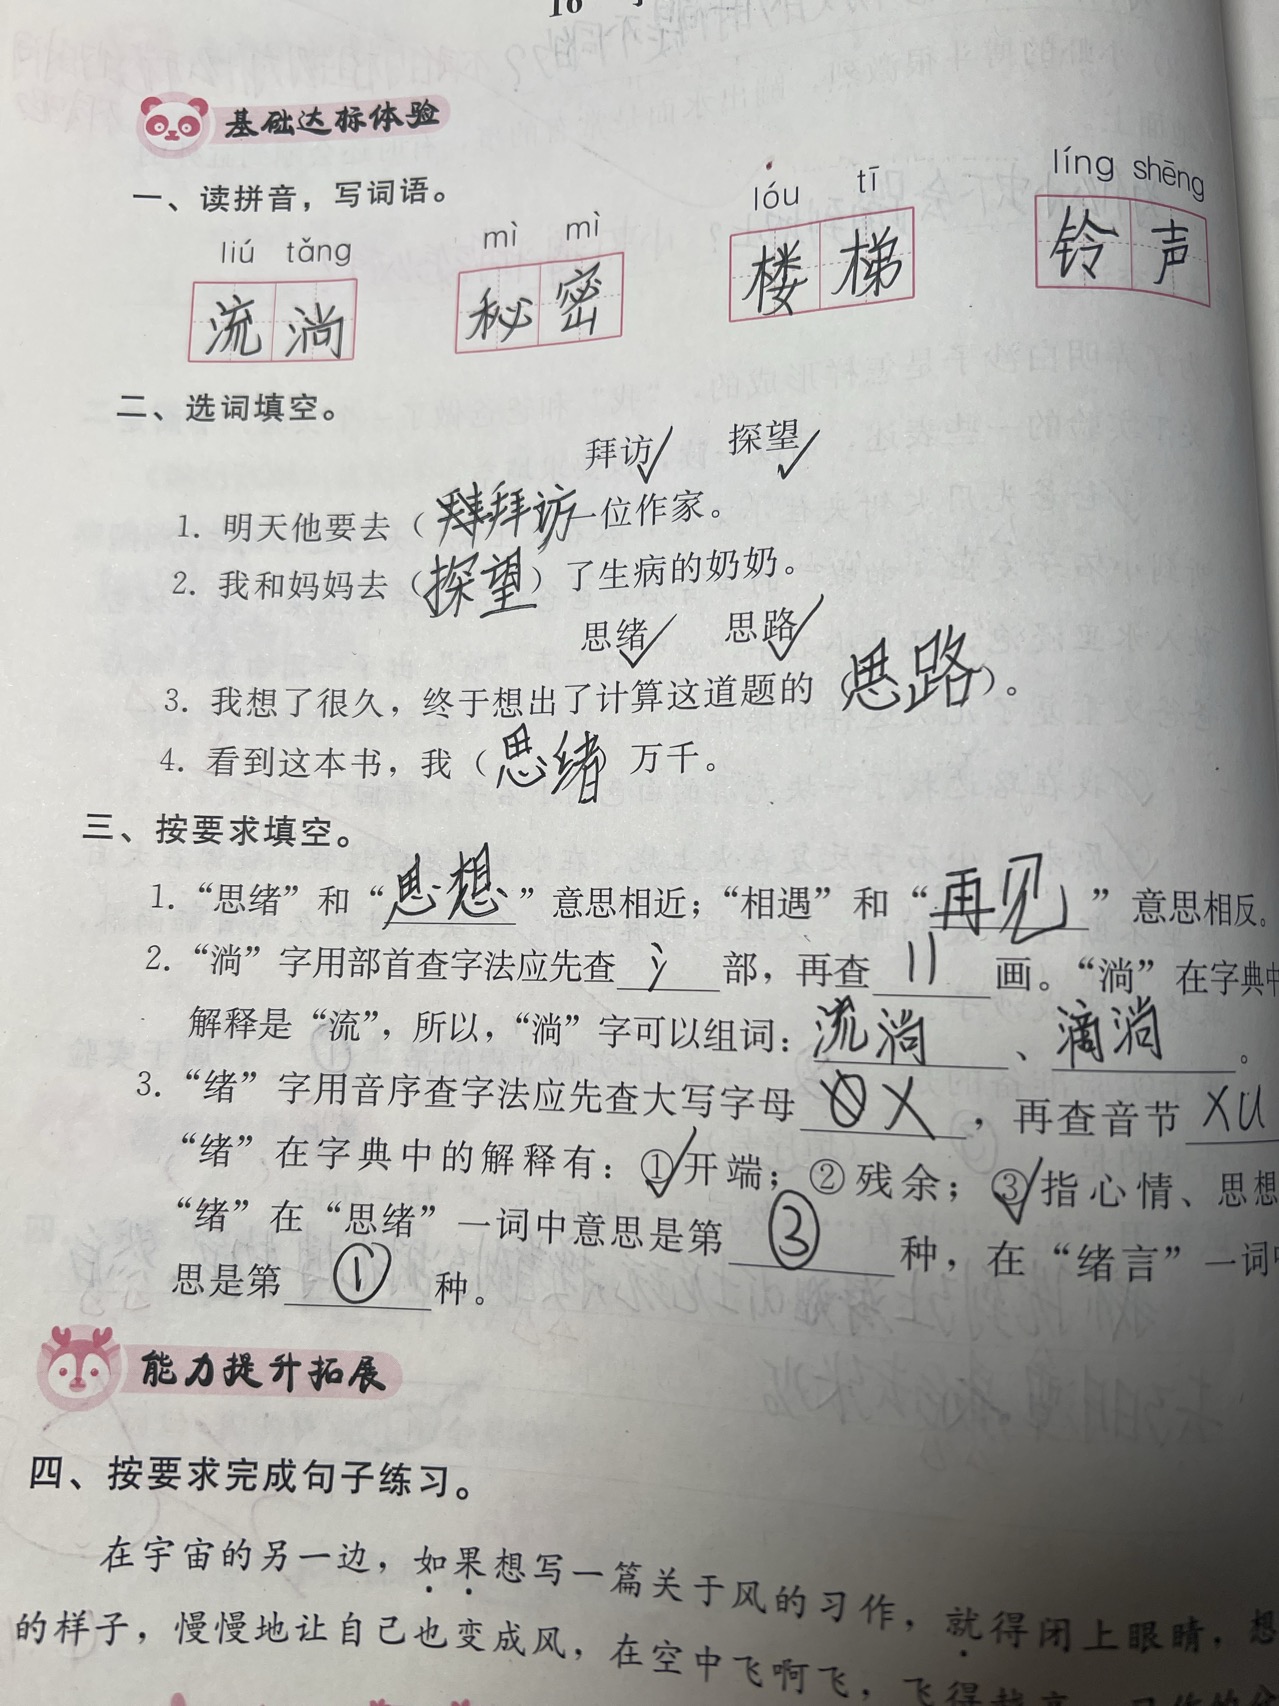 基础达标体验
一、读拼音，写词语。
liú tǎng mì mì lóu tī líng shēng
流淌 秘密 楼梯 铃声
二、选词填空。
拜访 探望
1. 明天他要去（拜访一位作家。
2. 我和妈妈去（探望）了生病的奶奶。
思绪 思路
3. 我想了很久，终于想出了计算这道题的（思路）。
4. 看到这本书，我（思绪）万千。
三、按要求填空。
1. “思绪”和“思想”意思相近；“相遇”和“再见”意思相反。
2. “淌”字用部首查字法应先查氵部，再查11画。“淌”在字典中
解释是“流”，所以，“淌”字可以组词：流淌、滴淌。
3. “绪”字用音序查字法应先查大写字母X，再查音节xu
“绪”在字典中的解释有：①开端；②残余；③指心情、思想
“绪”在“思绪”一词中意思是第③种，在“绪言”一词中
思是第①种。
能力提升拓展
四、按要求完成句子练习。
在宇宙的另一边，如果想写一篇关于风的习作，就得闭上眼睛，想
的样子，慢慢地让自己也变成风，在空中飞啊飞，飞得越高